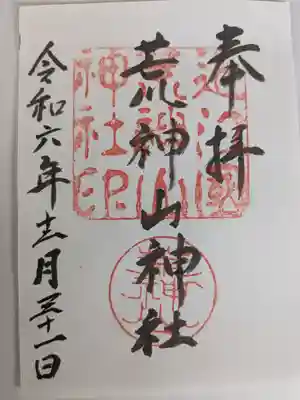 奉拝
近江國
荒神山
神社印
荒神山神社
令和六年十二月三十一日